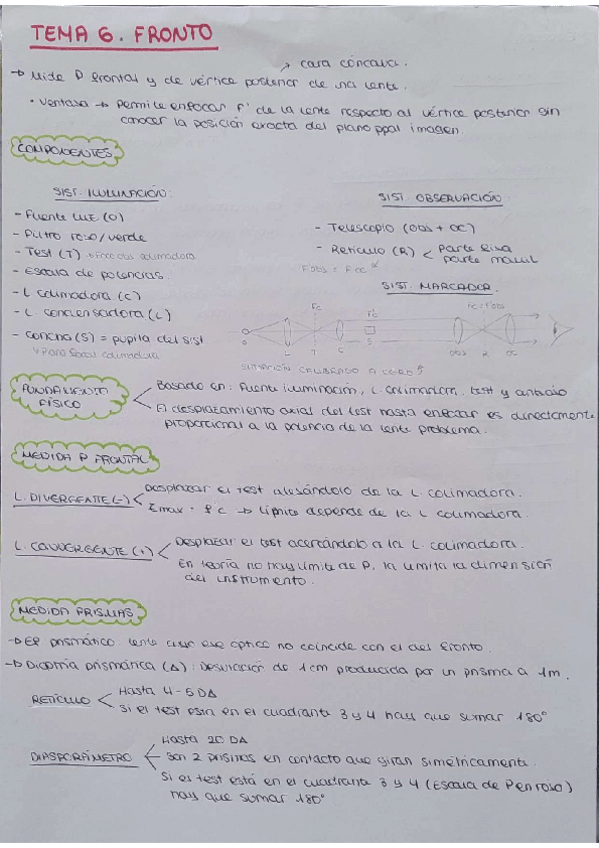 TEMA 6. FRONTO
→ cara cóncava.
→ Mide P frontal y de vértice posterior de una lente.
• Ventaja → Permite enfocar F' de la lente respecto al vértice posterior sin
conocer la posición exacta del plano ppal imagen.
COMPONENTES
SIST. ILUMINACIÓN:
- Fuente luz (O)
- Filtro rojo/verde
- Test (T) colimadora
- Escala de potencias.
- L colimadora (C)
- L. condensadora (L)
- Concha (S) = pupila del sist
Plano focal colimadora
SIST. OBSERVACIÓN:
- Telescopio (Obs + OC)
- Retículo (R) < Parte fija
parte móvil
F'obs = Foc
SIST. MARCADOR.
Fc
L T C S Obs R OC
SITUACIÓN CALIBRADO A CERO
FUNDAMENTO
FÍSICO
Basado en: Fuente iluminación, L. colimadora, test y anteojo
El desplazamiento axial del test hasta enfocar es directamente
proporcional a la potencia de la lente problema.
MEDIDA P FRONTAL
L. DIVERGENTE (-) < Desplazar el test alejándolo de la L. colimadora.
Emax = fc → Límite depende de la L colimadora.
L. CONVERGENTE (+) < Desplazar el test acercándolo a la L. colimadora.
En teoría no hay límite de P, la limita la dimensión
del instrumento.
MEDIDA PRISMAS
→ Ef prismático: lente cuyo eje óptico no coincide con el del fronto.
→ Dioptría prismática (Δ): Desviación de 1 cm producida por un prisma a 1m.
RETÍCULO < Hasta 4-5 DΔ
Si el test está en el cuadrante 3 y 4 hay que sumar 180°
DIASPORÁMETRO
Hasta 20 DΔ
Son 2 prismas en contacto que giran simétricamente.
Si el test está en el cuadrante 3 y 4 (Escala de Penroso)
hay que sumar 180°